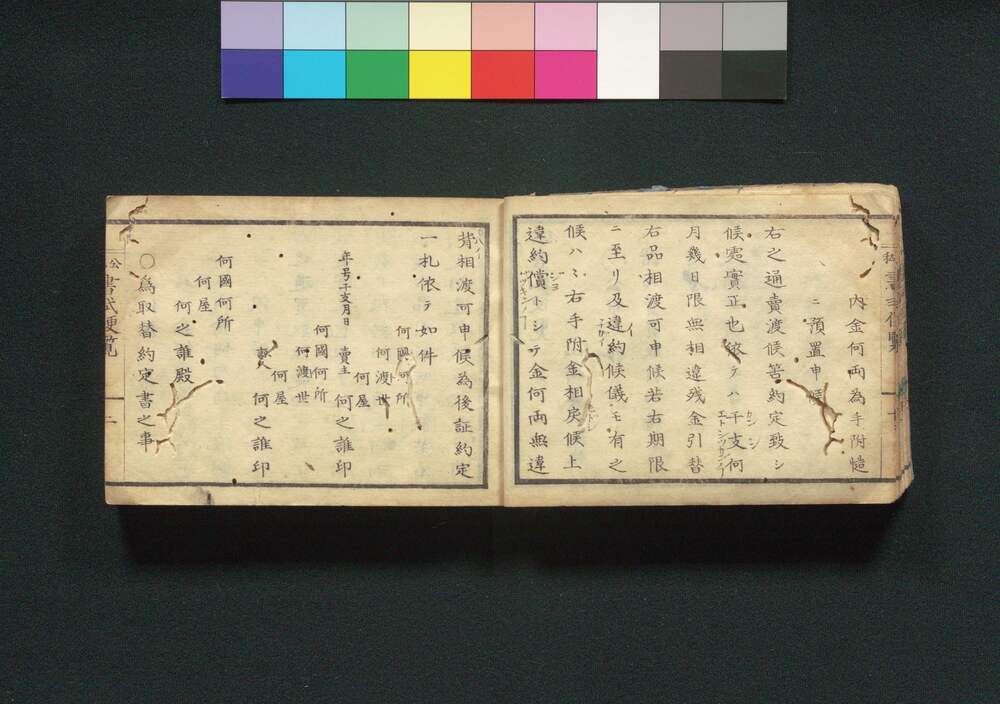 内金何両為手附慥
ニ預置申候
右之通賣渡候筈約定致シ
候處實正也依テハ干支何
月幾日限無相違残金引替
右品相渡可申候若右期限
ニ至リ及違約候儀モ有之
候ハヽ右手附金相戻候上
違約償トシテ金何両無違
背相渡可申候為後証約定
一札依テ如件
年号干支月日
何國何所
何渡世
何屋
賣主 何之誰印
何國何所
何渡世
何屋
何之誰印
何國何所
何屋
何之誰殿
○為取替約定書之事
書式便覧